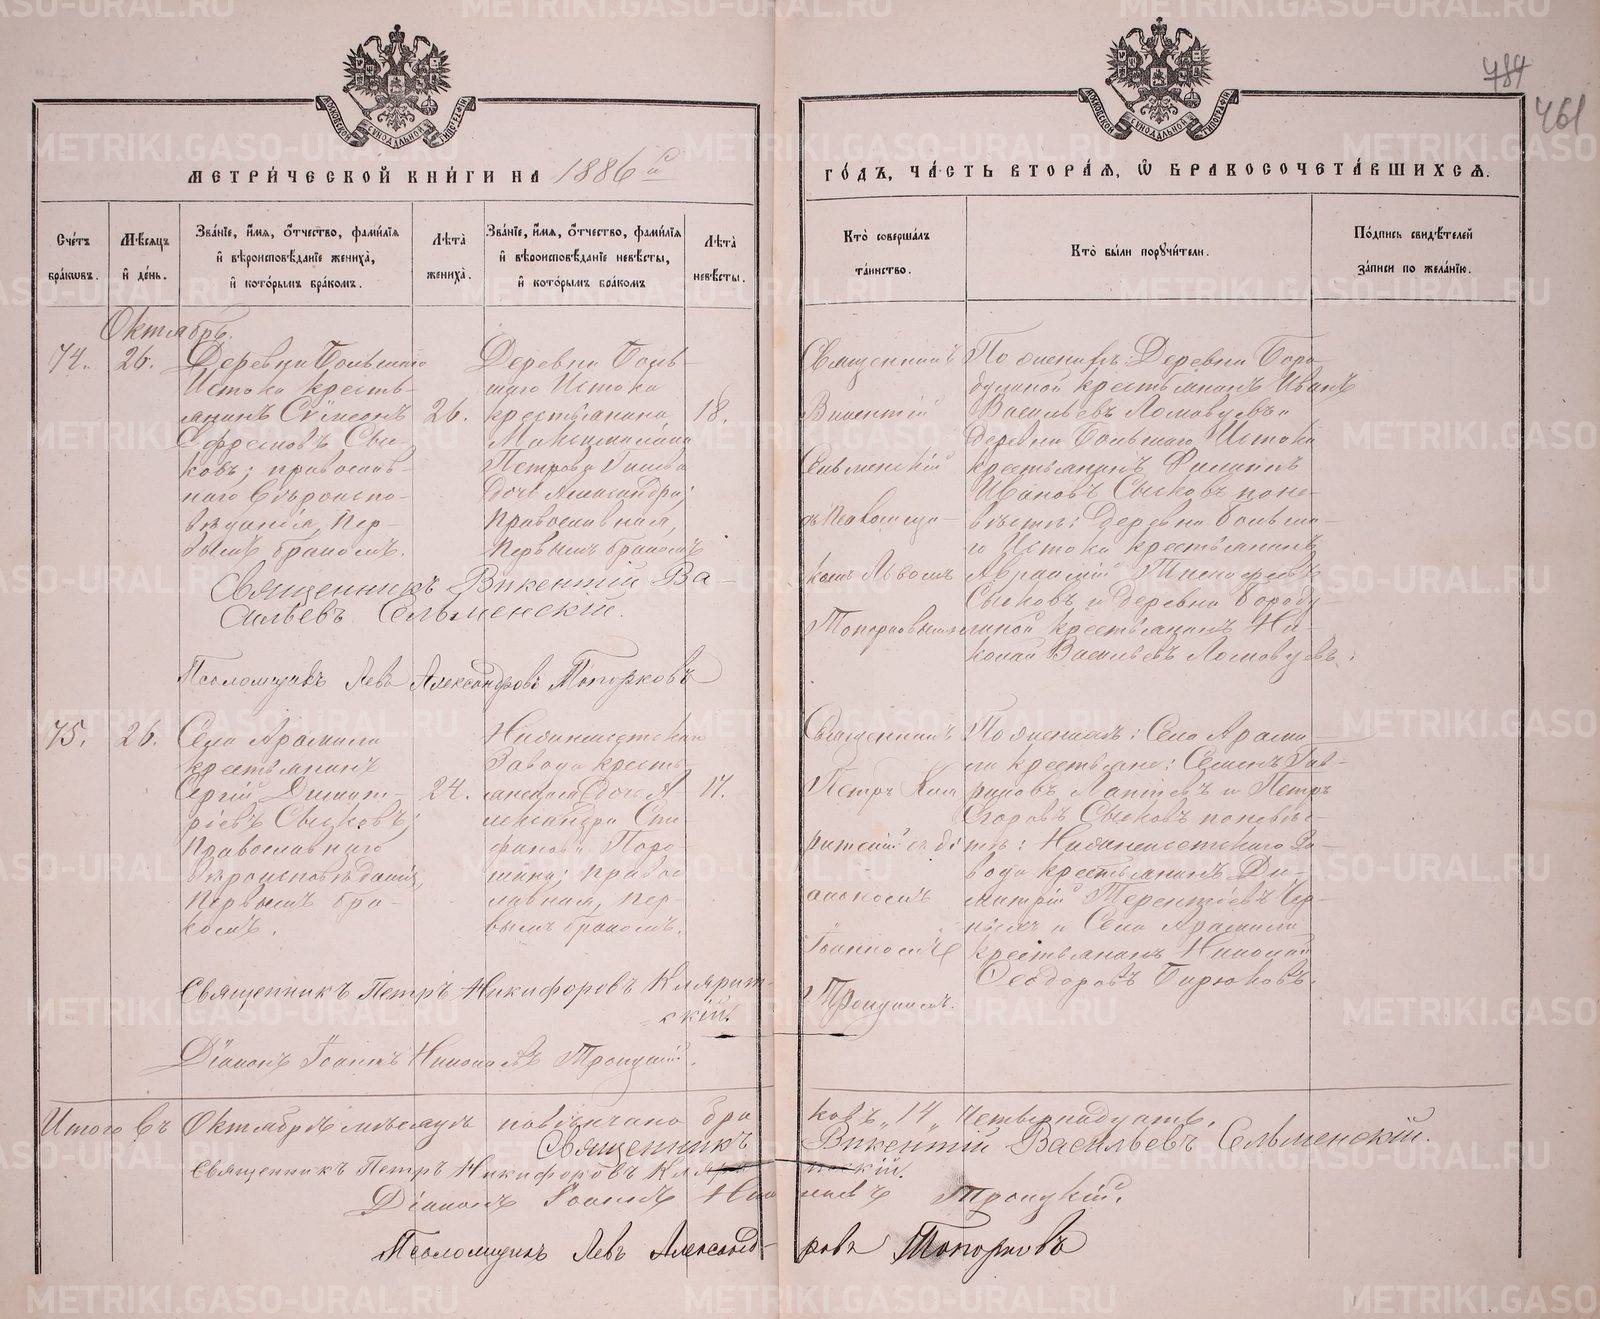 784
461
МОСКОВСКОЙ СѴНОДАЛЬНОЙ ТИПОГРАФІИ
МОСКОВСКОЙ СѴНОДАЛЬНОЙ ТИПОГРАФІИ
МЕТРИ́ЧЕСКОЙ КНИ́ГИ НА 1886 й
ГО́ДЪ, ЧА́СТЬ ВТОРА́Ѧ, Ѡ БРАКОСОЧЕТА́ВШИХСѦ.
Сче́тъ бра́кѡвъ.
Мѣ́сѧцъ и҆ де́нь.
Зва́нїе, и҆́мѧ, ѻ҆́тчество, фами́лїѧ и҆ вѣроисповѣ́данїе жениха̀, и҆ кото́рымъ бра́комъ.
Лѣ́та жениха̀.
Зва́нїе, и҆́мѧ, ѻ҆́тчество, фами́лїѧ и҆ вѣроисповѣ́данїе невѣ́сты, и҆ кото́рымъ бра́комъ
Лѣ́та невѣ́сты.
Кто̀ соверша́лъ та́инство.
Кто̀ бы́ли порꙋчи́тели.
По́дпись свидѣ́телей за́писи по жела́нїю.
Октябрь.
74.
26.
Деревни Большаго
Истока кресть-
янинъ Сѵмеонъ
Ефремовъ Сыс-
ковъ; православ-
наго вѣроиспо-
вѣданія, пер-
вымъ бракомъ.
26.
Деревни Боль-
шаго Истока
крестьянина
Максимиліана
Петрова
дочь Александра;
православная,
первымъ бракомъ
18.
Священникъ
Викентій
Сельменскій
съ Псаломщи-
комъ Львомъ
Топорковымъ
По женихѣ: Деревни Боро-
дулиной крестьянинъ Иванъ
Васильевъ Ломовцевъ и
деревни Большаго Истока
крестьянинъ Филиппъ
Ивановъ Сысковъ по не-
вѣстѣ: Деревни Больша-
го Истока крестьянинъ
Авраамій Тимофеевъ
Сысковъ и деревни Бороду-
линой крестьянинъ Ни-
колай Васильевъ Ломовцевъ.
Священникъ Викентій Ва-
сильевъ Сельменскій.
Псаломщикъ Левъ Александровъ Топорковъ
75.
26.
Села Арамили
крестьянинъ
Сергій Димит-
ріевъ Сысковъ;
православнаго
вѣроисповѣданія,
первымъ бра-
комъ.
24.
Нижнеисетскаго
завода кресть-
янская дочь А-
лександра Сте-
фанова Паро-
шина; правос
лавная, пер-
вымъ бракомъ.
17.
Священникъ
Петръ Кля
ритскій съ ді
акономъ
Іоанномъ
Троицкимъ.
По женихѣ: Села Арами-
ли крестьяне: Семенъ Гав-
риловъ Лаптевъ и Петръ
Егоровъ Сысковъ по невѣс-
тѣ: Нижнеисетскаго За-
вода крестьянинъ Ди-
митрій Терентіевъ Чер-
ныхъ и Села Арамили
крестьянинъ Николай
Ѳеодоровъ Бирюковъ.
Священникъ Петръ Никифоровъ Клярит-
скій.
Діаконъ Іоаннъ Николаевъ Троицкій.
Итого въ Октябрѣ мѣсяцѣ повѣнчано бра
ковъ „14„ четырнадцать.
Священникъ Викентій Васильевъ Сельменскій.
Священникъ Петръ Никифоровъ Кляритскій.
Діаконъ Іоаннъ Николаевъ Троицкій.
Псаломщикъ Левъ Александ-
ровъ Топорковъ
METRIKI.GASO-URAL.RU